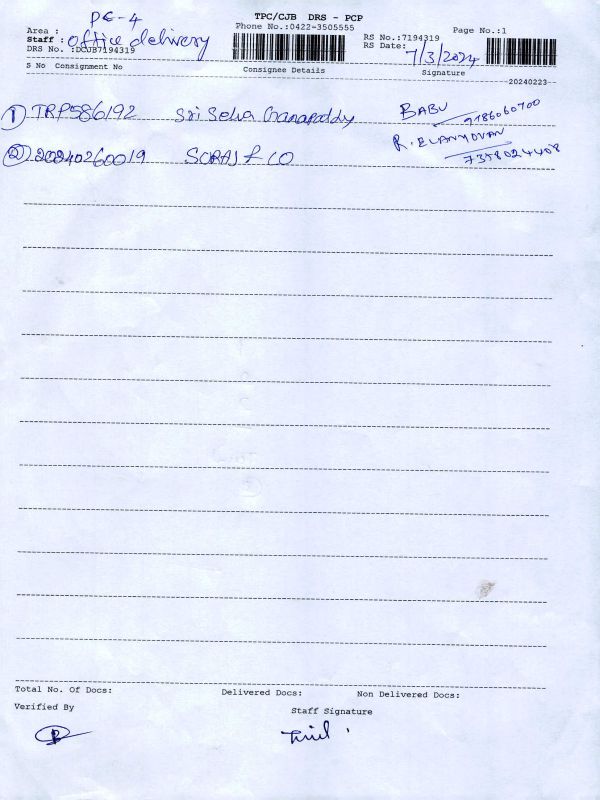 TPC/CJB DRS - PCP
Area : PC-4 Phone No.:0422-3505555 RS No.:7194319 Page No.:1
Staff : office delivery RS Date: 7/3/2024
DRS No. :DCJB7194319
S No Consignment No Consignee Details Signature
--20240223--
① TRP586192 Sri Selva Ganapathy BABU 9786060700
② 20240260019 SURAJ & CO R. 7358024408
Total No. Of Docs: Delivered Docs: Non Delivered Docs:
Verified By Staff Signature